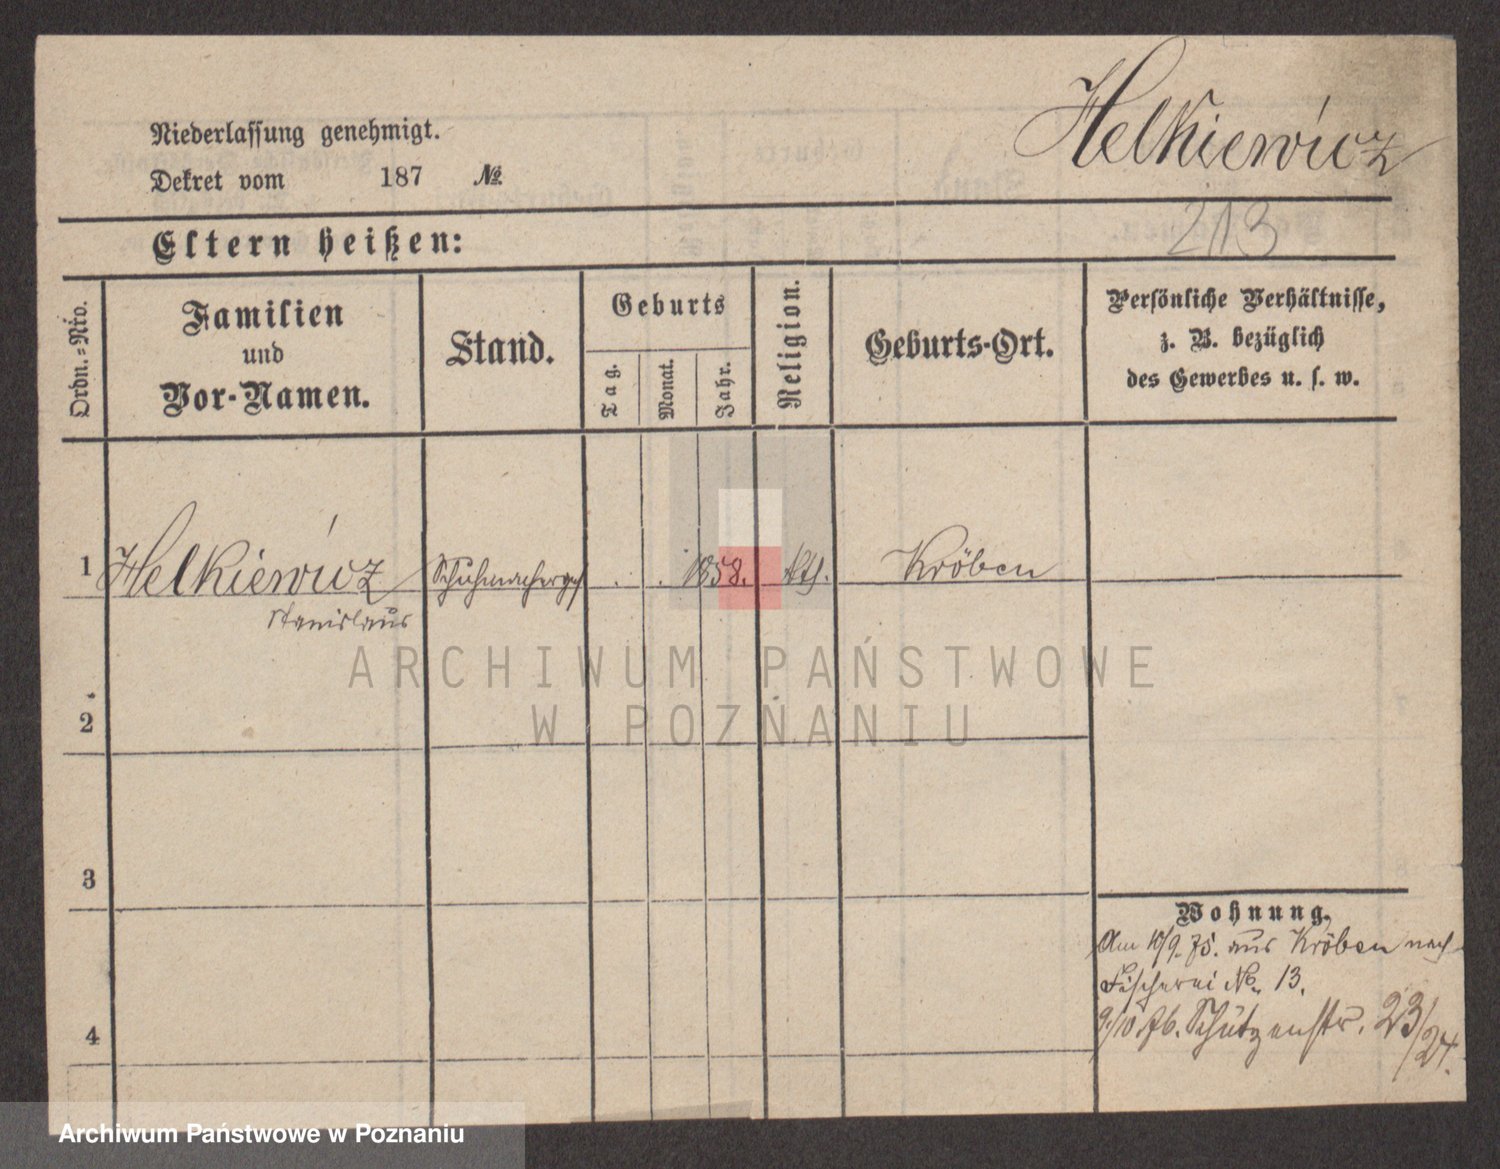 Helkiewicz
Niederlassung genehmigt.
Dekret vom 187 №
213
Eltern heißen:
Ordn.=Nro.
Familien
und
Vor-Namen.
Stand.
Geburts
Tag.
Monat.
Jahr.
Religion.
Geburts-Ort.
Persönliche Verhältnisse,
z. B. bezüglich
des Gewerbes u. s. w.
1 Helkiewicz Schuhmacherges 1858. kth. Kröben
Stanislaus
ARCHIWUM PAŃSTWOWE
W POZNANIU
2
3
4
Wohnung.
Am 10/9. 75. aus Kröben nach
Fischerei No. 13.
9/10 76. Schützenstr. 23/24.
Archiwum Państwowe w Poznaniu